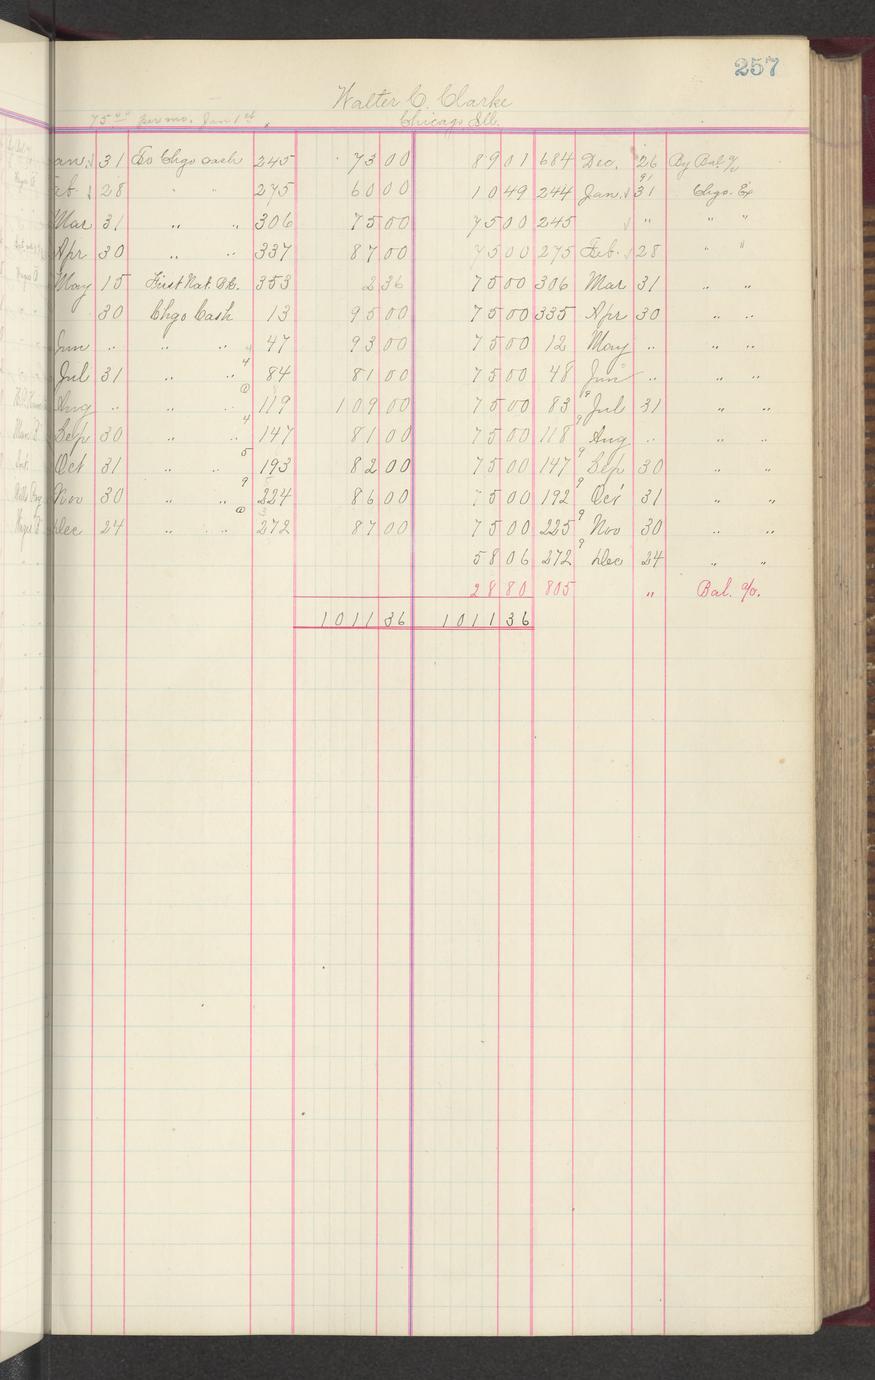 257
Walter C. Clarke
75 00 per mo. Jan 1st. Chicago Ills.
Jan 31 To Chgo Cash 245 73 00 89 01 684 Dec. 26 By Bal
91
Feb 28 " " 275 60 00 10 49 244 Jan. 31 Chgo. Ex
Mar 31 " " 306 75 00 75 00 245 " " "
Apr 30 " " 337 87 00 75 00 275 Feb. 28 " "
May 15 First Nat. Bk. 353 2 36 75 00 306 Mar 31 " "
30 Chgo Cash 13 95 00 75 00 335 Apr 30 " "
Jun " " " 47 93 00 75 00 12 May " " "
Jul 31 " " 4 84 81 00 75 00 48 Jun " " "
Aug " " " 119 109 00 75 00 83 9 Jul 31 " "
Sep 30 " " 4 147 81 00 75 00 118 9 Aug " " "
Oct 31 " " 5 193 82 00 75 00 147 9 Sep 30 " "
Nov 30 " " 9 224 86 00 75 00 192 9 Oct 31 " "
Dec 24 " " 272 87 00 75 00 225 9 Nov 30 " "
58 06 272 9 Dec 24 " "
28 80 805 " Bal. a/c.
1011 36 1011 36